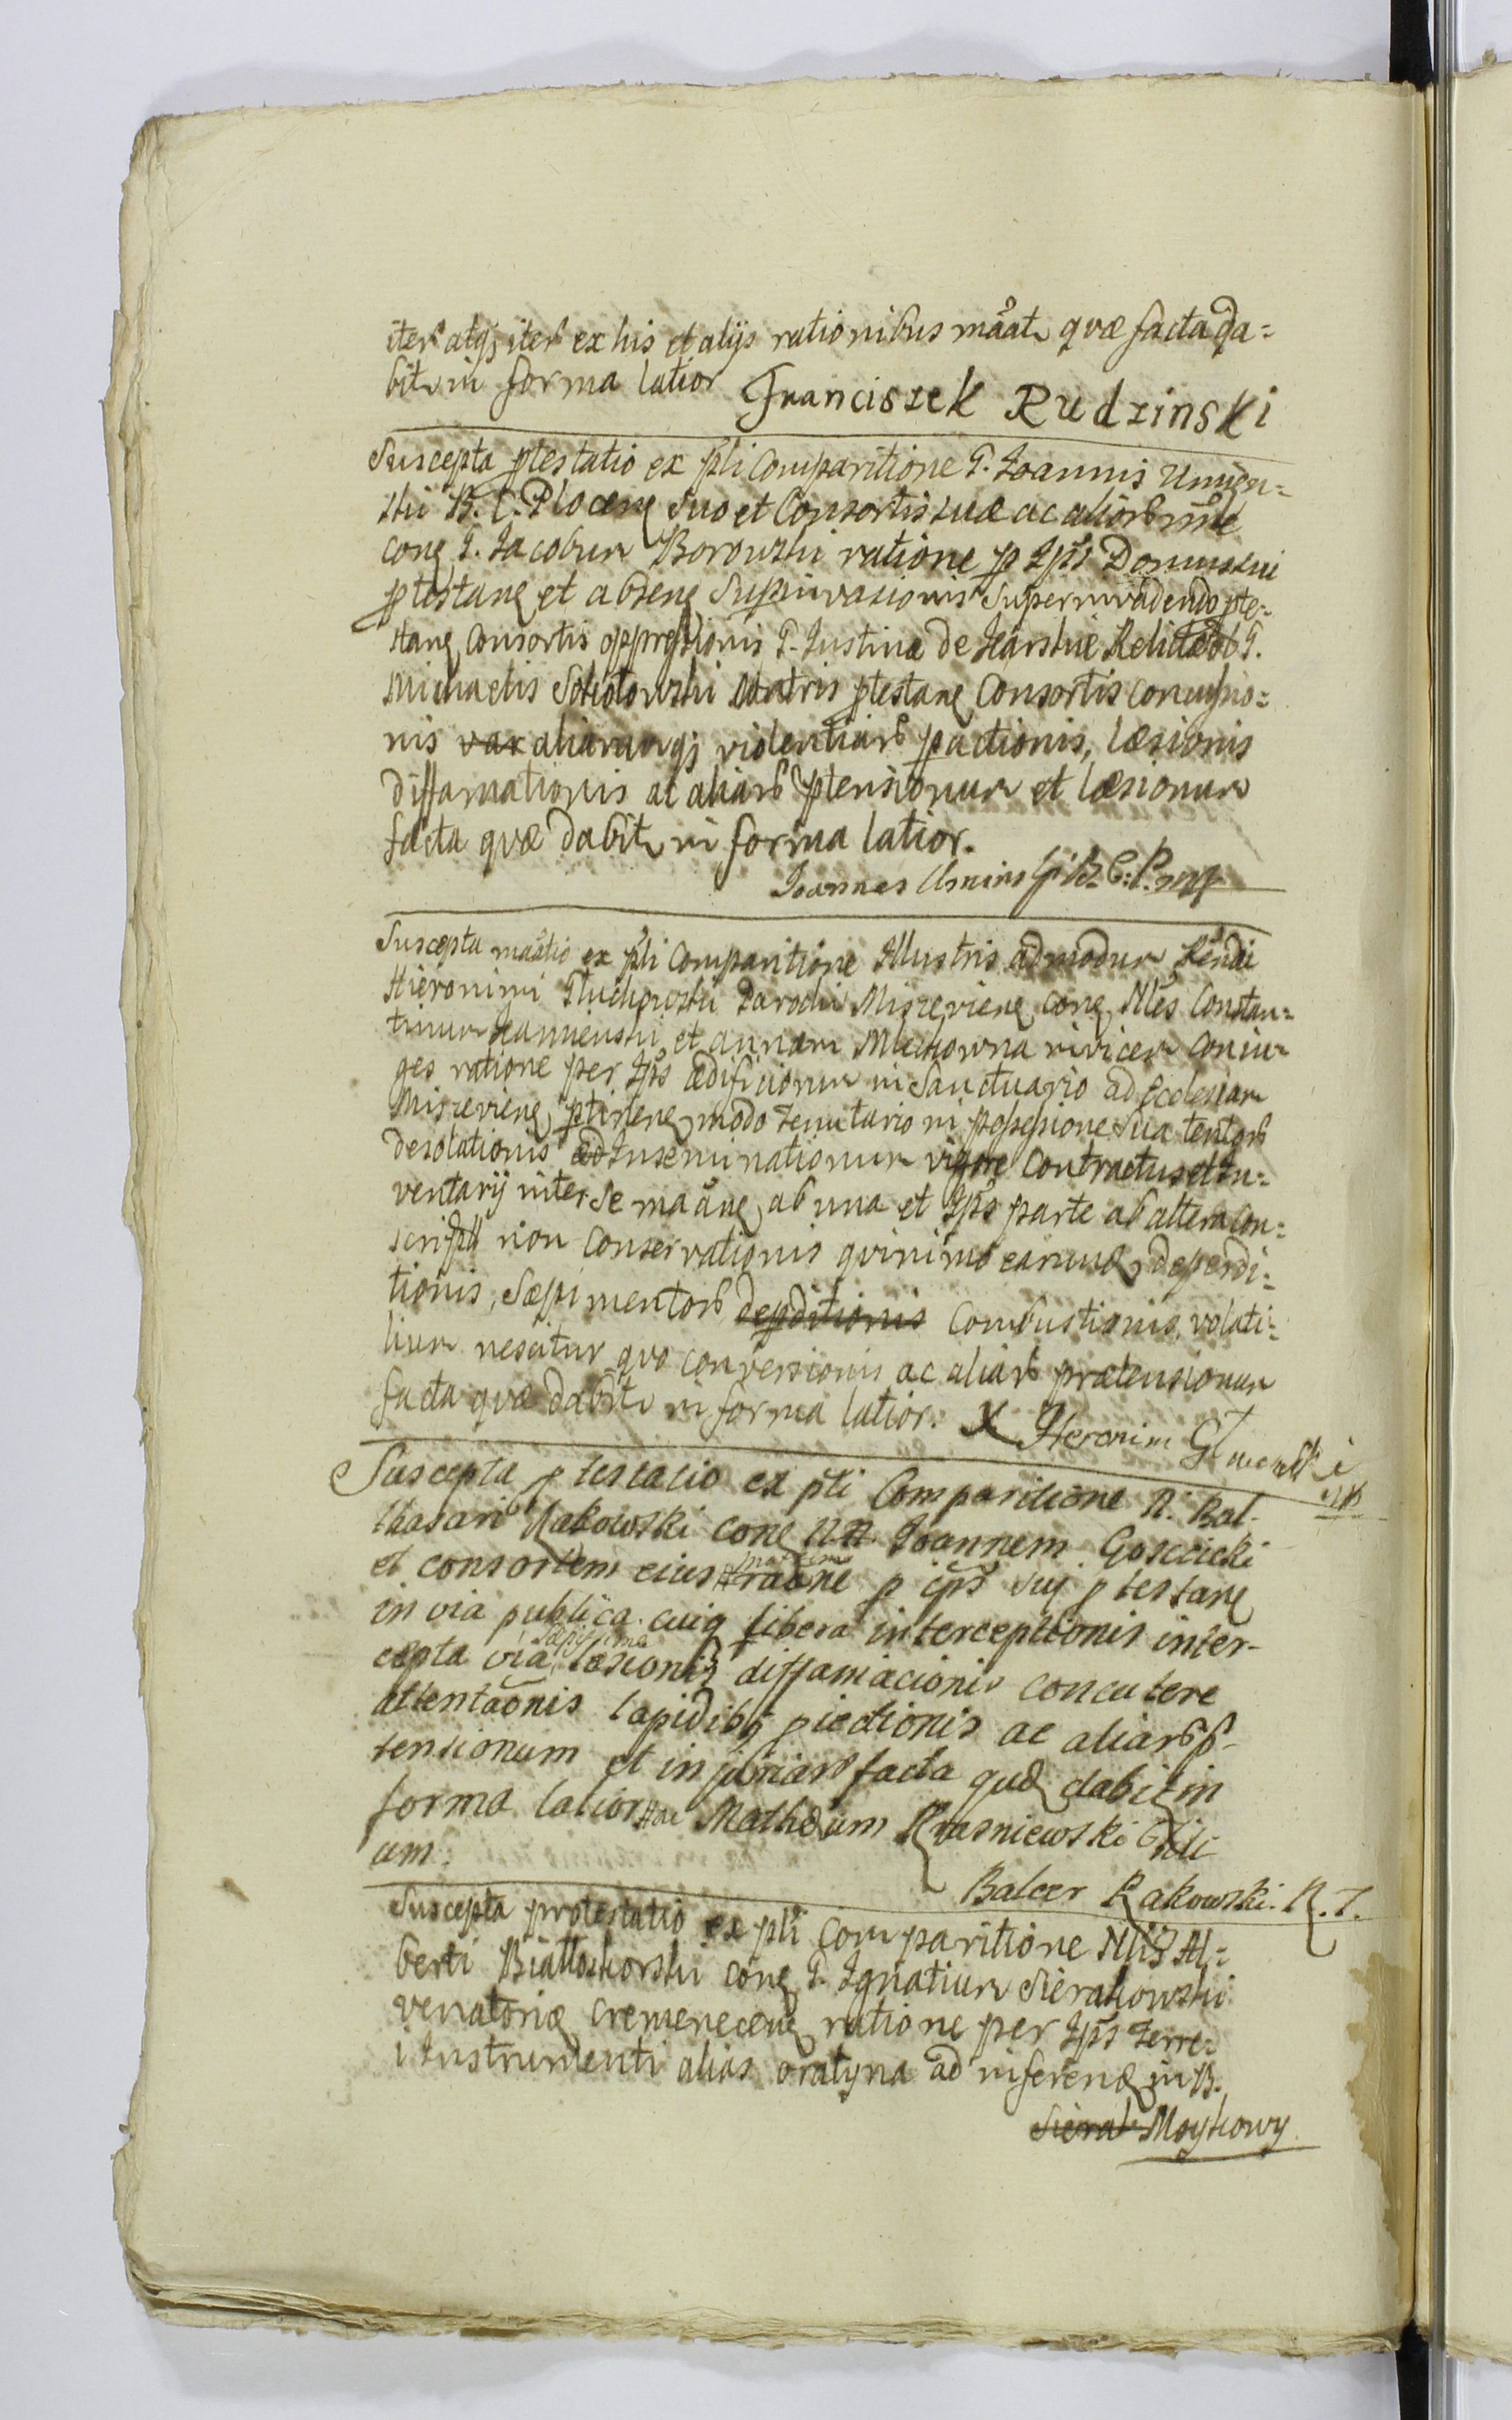 iterb atq; iterb ex his et alijs rationibus mãat quæ facta da=
bit in forma latior Franciszek Rudzinski
Suscepta ptestatio ex pñti Comparitione G. Joannis Umien=
ski B. C. Plocen Suo et Consortis suæ ac aliorb nõie
con G. Jacobum Borowski ratione p Ips Domus sui
ptestan et absen Supinvasionis Superinvadendo ptes=
tan Consortis oppressionis G. Justinæ de Relictæ G.
Michaelis Sokołowski Matris ptestan Consortis concussio=
nis aliarumq; violentiarb pactionis, læsionis
diffamationis ac aliarb ptensionum et læsionum
facta quæ dabit in forma latior.
Joannes Uminski B. C. P. mp
Suscepta mãatio ex pñti Comparitione Illustris admodum Rendi
Hieronimi Głuchowski Parochi Miszevien con Nles Constan=
tinum Kamienski et annam coniu
ges ratione per Ips ædificiorum in Sanctuario ad Ecclesiam
Miszevien ptinen modo Tenutario in possessione sua tentorb
desolationis Inseminationum vigore Contractus et In=
ventarij inter se maãn ab una et Ips parte ab altera con=
scripti non Conservationis quinimo earund deperdi=
tionis, Sæpimentorb depditionis Combustionis, volati=
lium nescitur quo conversionis ac aliarb prætensionum
facta quæ dabit in forma latior. X Hieronim Głuchowski
mp
Suscepta ptestatio ex pñti Comparitione N. Bal-
thasari Rakowski con NN Joannem Goscicki
et consortem eius maxime raõne p ips sui ptestan
in via publica cuiq libera interceptionis inter-
cepta via sæpissime læsionis diffamacionis concutere
attentaõnis lapidibq piectionis ac aliarb p-
tensionum et injuriarb facta quæ dabit in
forma latior #ac Mathæum Krasniewski fili
um.
Balcer Rakowski. R. T.
Suscepta protestatio ex pñti Comparitione Nlis Al=
berti Białłoskorski con G. Ignatium Sierakowski
venatorie Cremenecen ratione per Ips ferre=
i Instrumenti alias oratyna ad inferend in B.
Sierak Moykowy